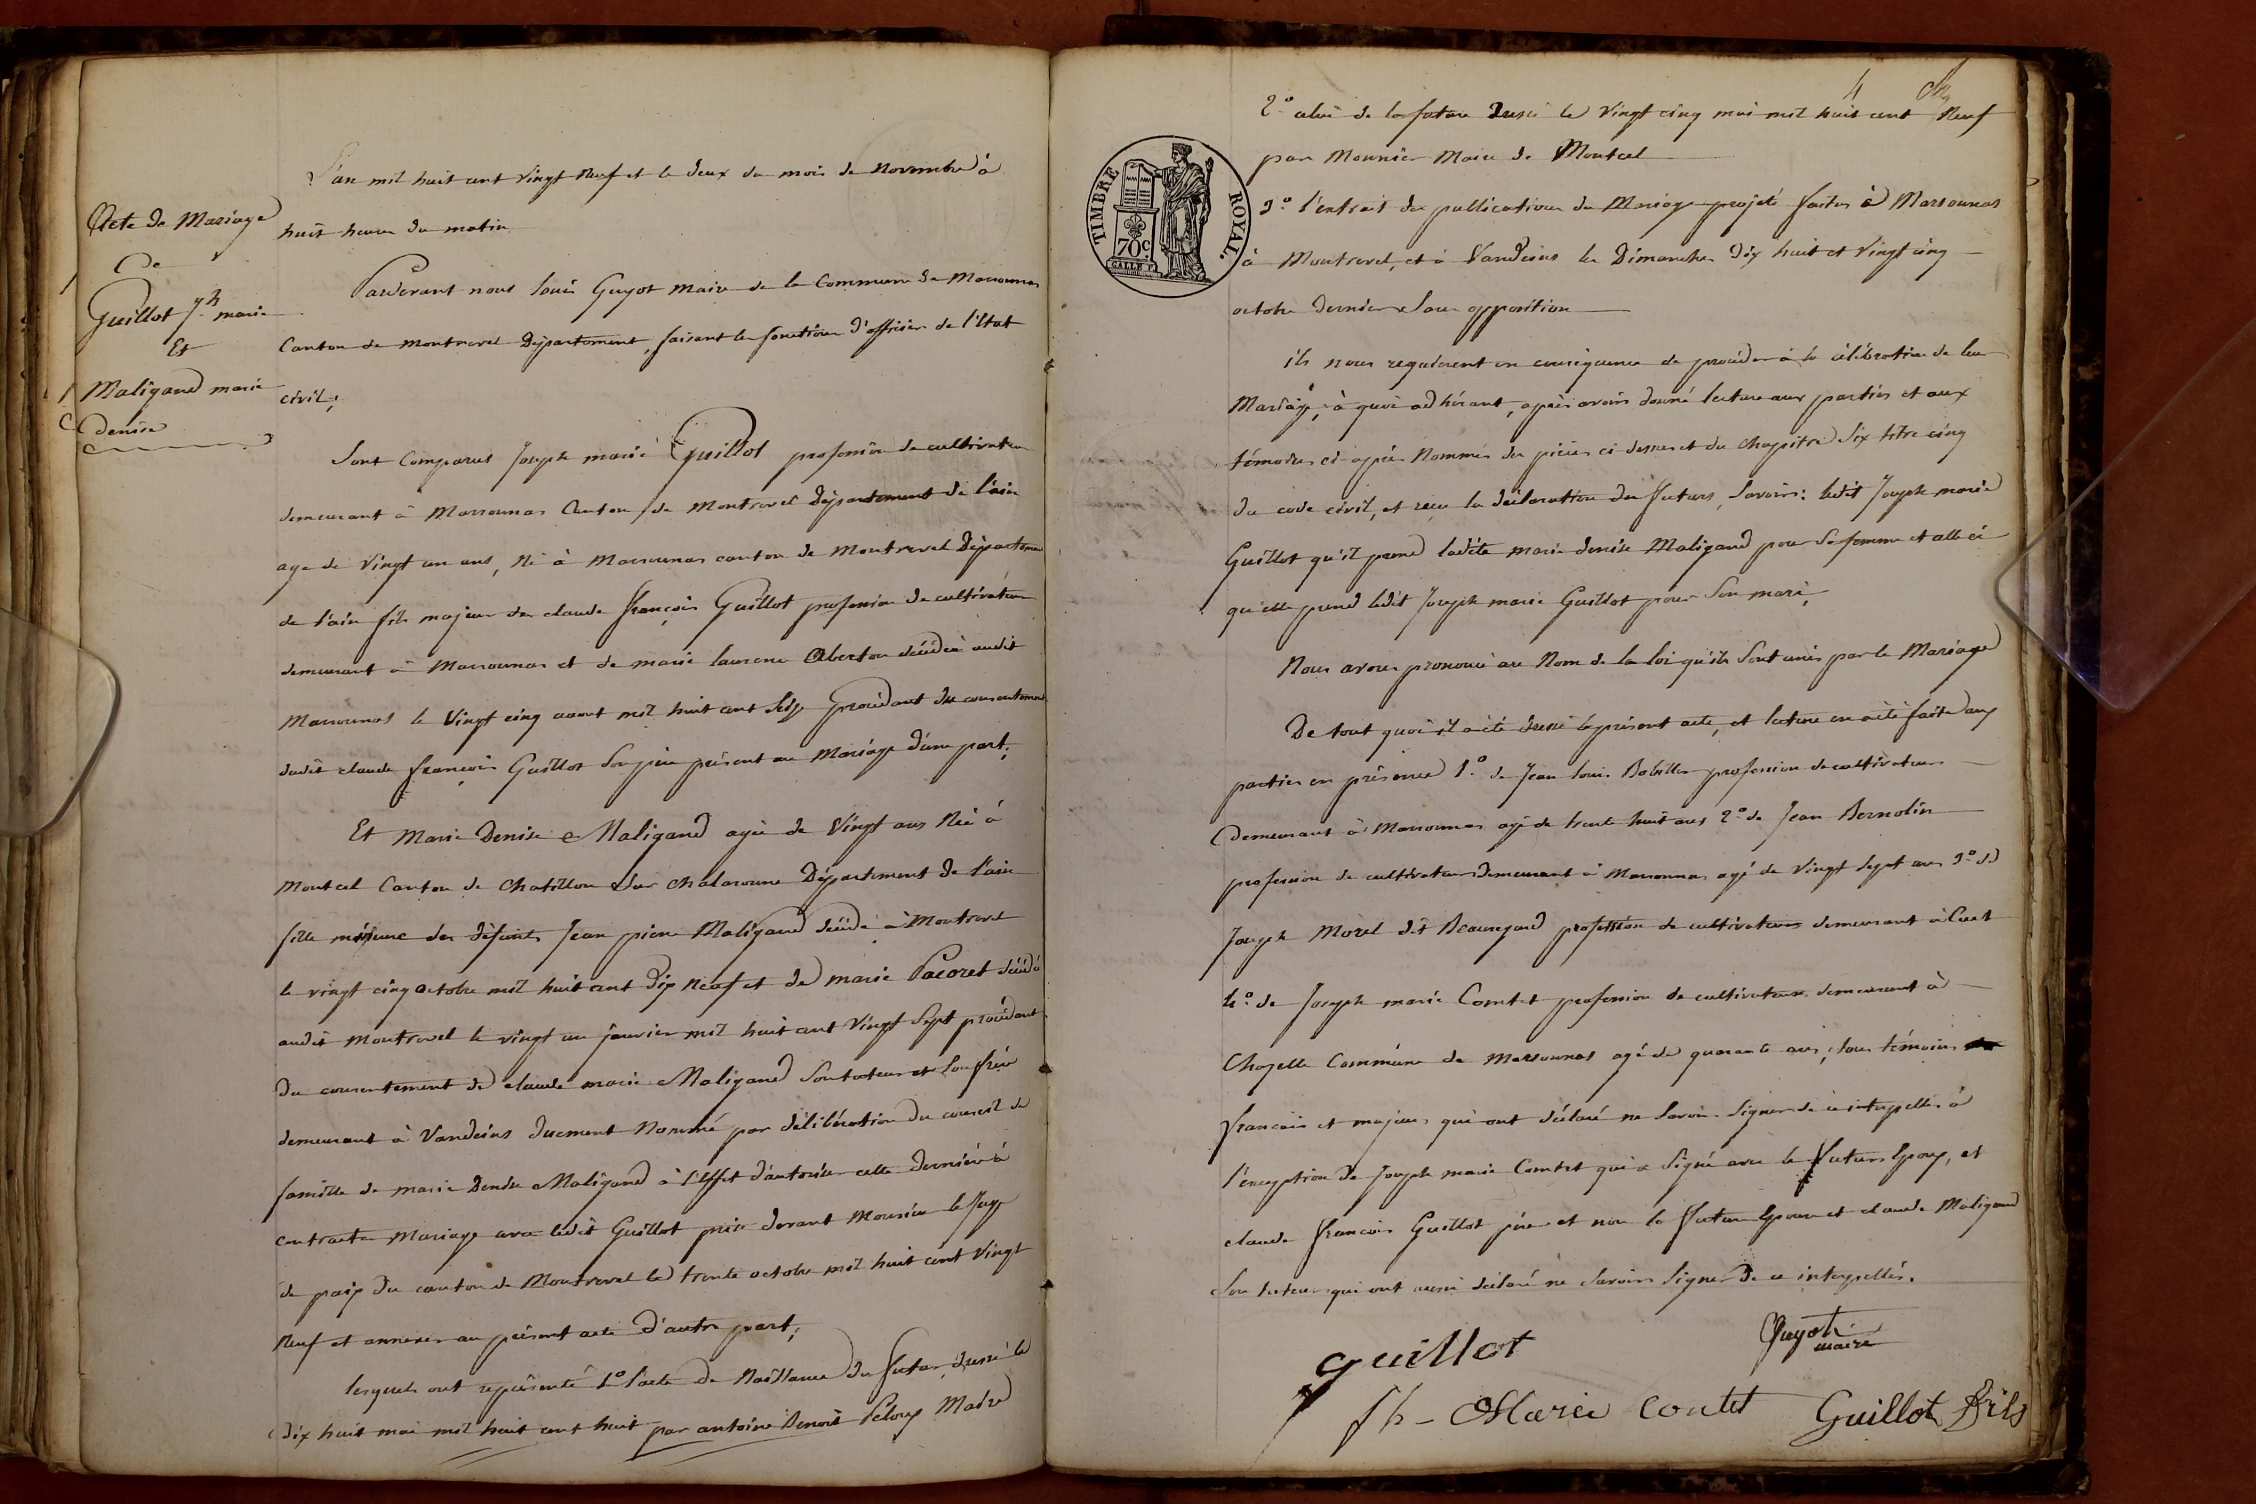 Acte de Mariage
De
Guillot jh marie
Et
Maligand marie
denise
L'an mil huit cent vingt Neuf et le deux du mois de Novembre à
huit heures du matin
Pardevant nous louis Guyot Maire de la Commune de Marsonnas
Canton de Montrevel Département, faisant les fonctions d'officier de l'Etat
civil;
Sont Comparus Joseph marie Guillot profession de cultivateur
demeurant à Marsonnas Canton de Montrevel Département de l'ain
age de vingt un ans, Né à Marsonnas canton de Montrevel Départemen
de l'ain fils majeur de claude françois Guillot profession de cultivateur
demeurant à Marsonnas et de marie laurence Aberton décédée audit
Marsonnas le vingt cinq aout mil huit cent seize procédant du consentement
dudit claude françois Guillot son père présent au Mariage d'une part;
Et Marie Denise Maligand agée de Vingt ans Née à
Montcel Canton de Chatillon sur chalaronne Département de l'ain
fille mineure des défunts Jean pierre Maligand décédé à Montrevel
le vingt cinq octobre mil huit cent dix Neuf et de marie Pacoret décédé
audit Montrevel le vingt un janvier mil huit cent Vingt Sept procédant
du consentement de claude marie Maligand son tuteur et son frère
demeurant à Vandeins duement Nommé par délibération du conseil de
famille de marie Denise Maligand à l'effet d'autoriser cette dernière à
contracter Mariage avec ledit Guillot prise devant Monsieur le Juge
de paix du canton de Montrevel le trente octobre mil huit cent Vingt
Neuf et annexée au présent acte d'autre part;
lesquels ont représenté 1o l'acte de Naissance du futur, dressé le
dix huit mai mil huit cent huit par antoine Benoit Peloux Maire
4
2o celui de la future dressé le Vingt cinq mai mil huit cent Neuf
par Monnier Maire de Montcel
TIMBRE ROYAL.
70c.
3o l'extrait des publications du Mariage projeté faites à Marsonnas
à Montrevel, et à Vandeins les Dimanches Dix huit et Vingt cinq
octobre dernier Sans opposition
ils nous requierent en conséquence de procéder à la célébration de leur
Mariage, à quoi adhérant, après avoir donné lecture aux parties et aux
témoins ci-après Nommés des pièces ci dessus et du chapitre Six titre cinq
du code civil, et reçu la déclaration des futurs, Savoir: ledit Joseph marie
Guillot qu'il prend ladite marie denise Maligand pour sa femme et celle ci
qu'elle prend ledit Joseph marie Guillot pour Son mari,
Nous avons prononcé au Nom de la loi qu'ils Sont unis par le Mariage
De tout quoi il a été dressé le présent acte, et lecture en a été faite aux
parties en présence 1.o de Jean louis Bobillon profession de cultivateur
demeurant à Marsonnas agé de trente huit ans 2o de Jean Bernolin
profession de cultivateur demeurant à Marsonnas agé de Vingt Sept ans 3o de
Joseph Morel dit Beauregard profession de cultivateur demeurant à Cuet
4o de Joseph marie Comtet profession de cultivateur demeurant à
Chapelle Commune de Marsonnas agé de quarante ans, tous témoins
français et majeurs qui ont déclaré ne Savoir Signer de ce interpellés à
l'exception de Joseph marie Comtet qui a Signé avec le futur Epoux, et
claude françois Guillot père et non la future Epouse et claude Maligand
Son tuteur qui ont aussi déclaré ne Savoir Signer De ce interpellés.
guillot
Guyot
maire
jh - Marie contet
Guillot fils